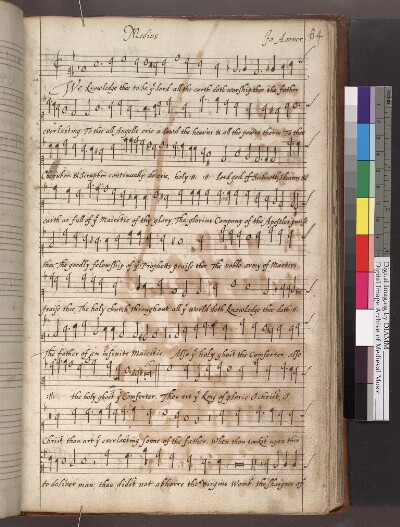 Medius Jo Amner 64
We knowledge thee to be yͤ lord all the earth doth worship thee the father
everlasting. To thee all Angells crie aloud the heavens & all the powers therin To thee
Cherubin & Seraphin continually do crie, holy :||: :||: lord god of Sabaoth heaven &
earth ar full of yͤ Maiestie of thy glory, The glorius Company of the Apostles praise
thee The goodly felowship of yͤ Prophetts praise thee The noble army of Martirs
praise thee The holy church throughout all yͤ world doth knowledge thee doth :||:
The father of an infinite Maiestie Also yͤ holy ghost the Comforter Also
:||: the holy ghost yͤ Comforter. Thou art yͤ King of glorie O Christ, O
Christ thou art yͤ everlasting sonne of the father When thou tookst upon thee
to deliver man thou didst not abhorre the Virgins Womb the sharpnes of
Digital Imaging by DIAMM
Digital Image Archive of Medieval Music